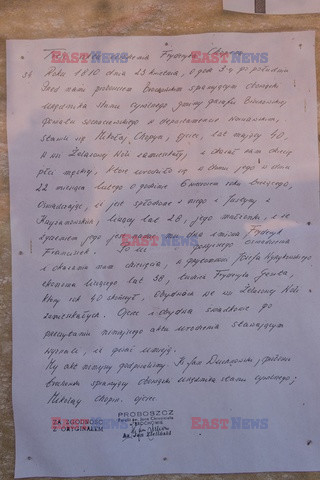 Treść aktu urodzenia Fryderyka Chopina
Roku 1810 dnia 23 kwietnia, o godz 3-ej po południu
Przed nami proboszczem Brochowskim sprawującym obowiązki
urzędnika stanu cywilnego gminy
powiatu sochaczewskiego w departamencie
stawił się Mikołaj Chopyn, ojciec, lat mający 40,
w wsi Żelazowej Woli zamieszkały, i okazał nam dziecię
płci męskiej, które urodziło się w domu jego w dniu
22 miesiąca lutego o godzinie 6 wieczorem roku bieżącego,
Oświadczając, że jest spłodzone z niego i Justyny z
Krzyżanowskich, liczącej lat 28, jego małżonki, i że
życzeniem jego jest nadać mu dwa imiona Fryderyk
Franciszek. Po uczynieniu powyższego oświadczenia
i okazaniu nam dziecięcia, w przytomności Józefa
ekonoma liczącego lat 38, tudzież Fryderyka Geszta,
który rok 40 skończył, obydwóch we wsi Żelazowej Woli
zamieszkałych. Ojciec i obydwaj świadkowie po
przeczytaniu niniejszego aktu urodzenia stawającym
wyznali, że pisać umieją.
My akt niniejszy podpisaliśmy. X. Jan Duchnowski, proboszcz
brochowski sprawujący obowiązki urzędnika stanu cywilnego;
Mikołaj Chopin, ojciec
ZA ZGODNOŚĆ
Z ORYGINAŁEM
PROBOSZCZ
BROCHÓW
EASTNEWS
EASTNEWS
EASTNEWS
EASTNEWS
EASTNEWS
EASTNEWS
EASTNEWS
EASTNEWS